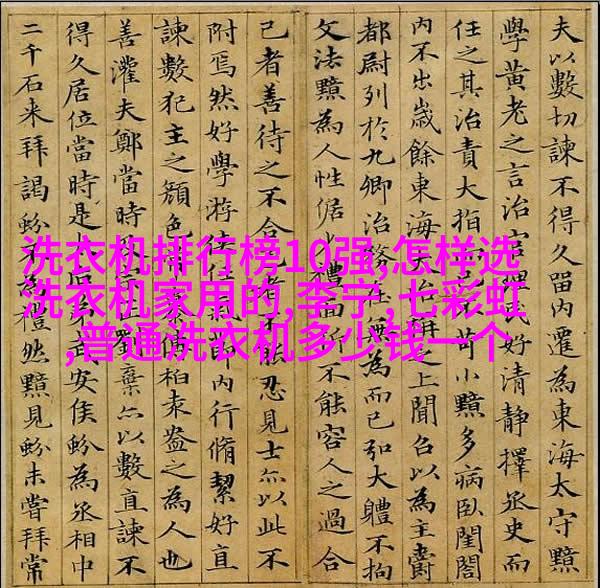 夫以數切諫不得久留内遷為東海太守黯
學黃老之言治官理民好清靜擇丞史而
任之其治責大指而已不苛小黯多病臥閨閤
内不出歲餘東海大治稱之上聞召以為主爵
都尉列於九卿治務在無為而已弘大體不拘
文法黯為人性倨少禮面折不能容人之過合
己者善待之不合己者不能忍見士亦以此不
附焉然好學游俠任氣節内行脩絜好直
諫數犯主之顏色傅柏袁盎之為人也
善灌夫鄭當時劉棄亦以數直諫不
得久居位當時是弟武安侯蚡為丞相中
二千石来拜謁蚡不為禮然黯見蚡未嘗拜常
洗衣机排行榜10强,怎样选
洗衣机家用的,李宁,七彩虹
,普通洗衣机多少钱一个